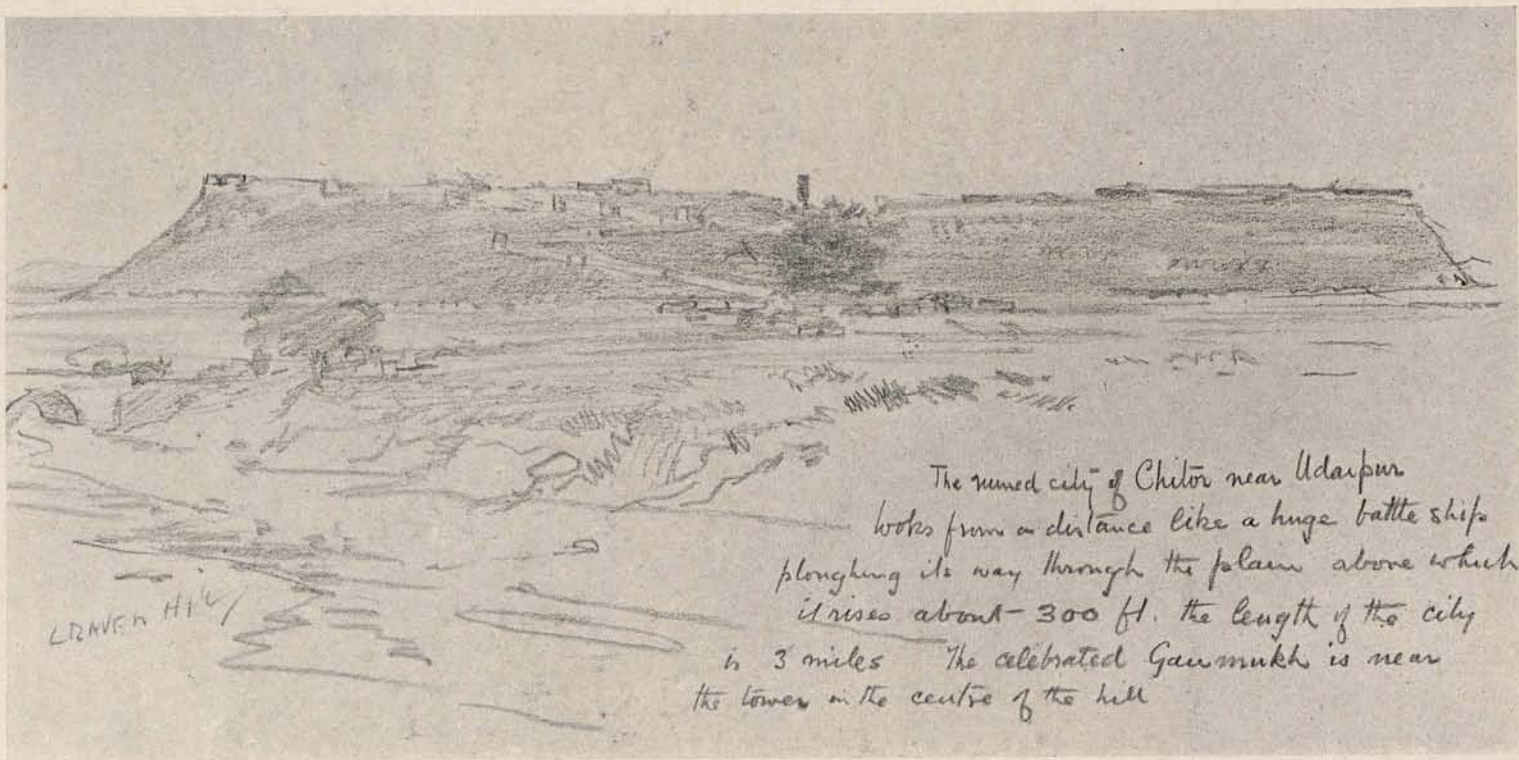 The ruined city of Chitor near Udaipur
looks from a distance like a huge battle ship
ploughing its way through the plain above which
it rises about - 300 ft. the length of the city
is 3 miles The celebrated Gaumukh is near
the tower in the centre of the hill
L RAVEN HILL